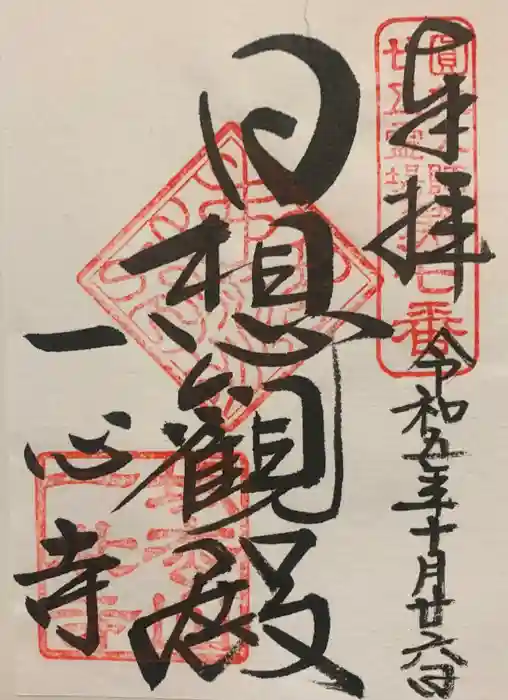 奉拝
令和五年十月廿六日
日想観殿
一心寺